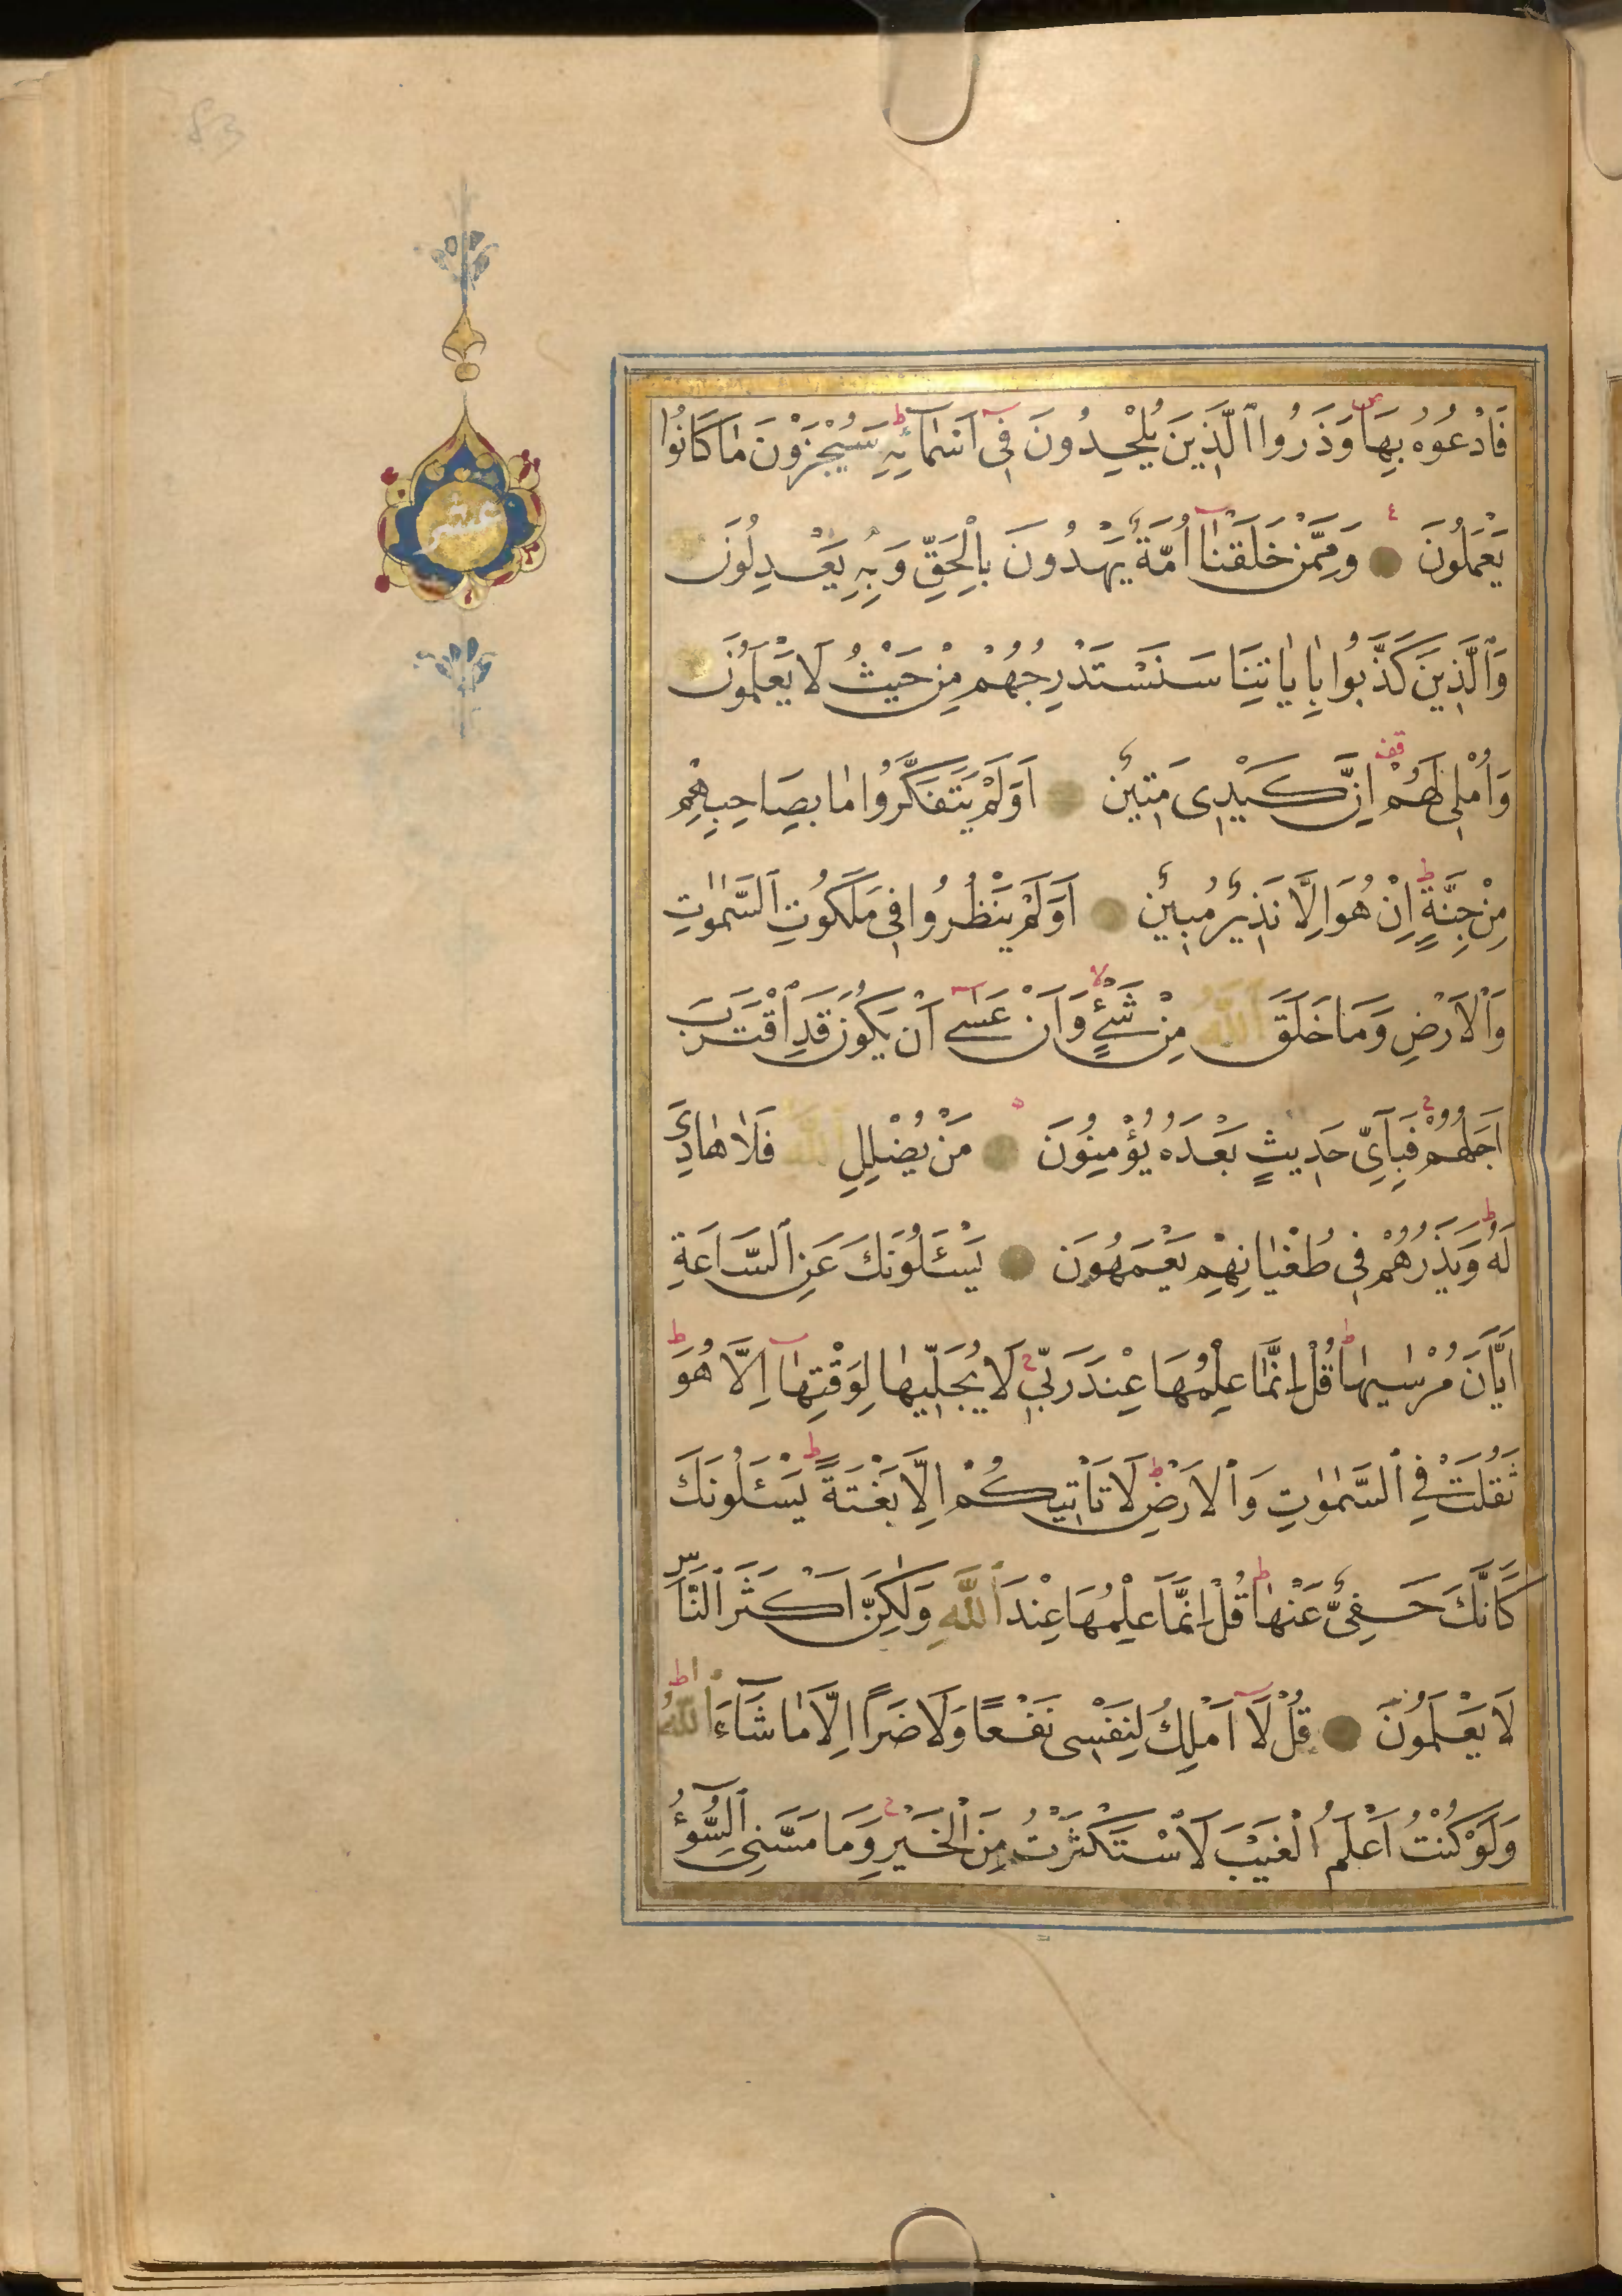 83
عشر
فَادْعُوهُ بِهَا وَذَرُوا الَّذِينَ يُلْحِدُونَ فِى اَسْمَائِهِ سَيُجْزَوْنَ مَا كَانُوا
يَعْمَلُونَ وَمِمَّنْ خَلَقْنَا اُمَّةٌ يَهْدُونَ بِالْحَقِّ وَبِهِ يَعْدِلُونَ
وَالَّذِينَ كَذَّبُوا بِاٰيَاتِنَا سَنَسْتَدْرِجُهُمْ مِنْ حَيْثُ لَا يَعْلَمُونَ
وَاُمْلِى لَهُمْ اِنَّ كَيْدِى مَتِينٌ اَوَلَمْ يَتَفَكَّرُوا مَا بِصَاحِبِهِمْ
مِنْ جِنَّةٍ اِنْ هُوَ اِلَّا نَذِيرٌ مُبِينٌ اَوَلَمْ يَنْظُرُوا فِى مَلَكُوتِ السَّمٰوٰتِ
وَالْاَرْضِ وَمَا خَلَقَ اللّٰهُ مِنْ شَىْءٍ وَاَنْ عَسٰى اَنْ يَكُونَ قَدِ اقْتَرَبَ
اَجَلُهُمْ فَبِاَىِّ حَدِيثٍ بَعْدَهُ يُؤْمِنُونَ مَنْ يُضْلِلِ اللّٰهُ فَلَا هَادِىَ
لَهُ وَيَذَرُهُمْ فِى طُغْيَانِهِمْ يَعْمَهُونَ يَسْـَٔلُونَكَ عَنِ السَّاعَةِ
اَيَّانَ مُرْسٰيهَا قُلْ اِنَّمَا عِلْمُهَا عِنْدَ رَبِّى لَا يُجَلِّيهَا لِوَقْتِهَا اِلَّا هُوَ
ثَقُلَتْ فِى السَّمٰوٰتِ وَالْاَرْضِ لَا تَاْتِيكُمْ اِلَّا بَغْتَةً يَسْـَٔلُونَكَ
كَاَنَّكَ حَفِىٌّ عَنْهَا قُلْ اِنَّمَا عِلْمُهَا عِنْدَ اللّٰهِ وَلٰكِنَّ اَكْثَرَ النَّاسِ
لَا يَعْلَمُونَ قُلْ لَا اَمْلِكُ لِنَفْسِى نَفْعًا وَلَا ضَرًّا اِلَّا مَا شَاءَ اللّٰهُ
وَلَوْ كُنْتُ اَعْلَمُ الْغَيْبَ لَاسْتَكْثَرْتُ مِنَ الْخَيْرِ وَمَا مَسَّنِىَ السُّوءُ